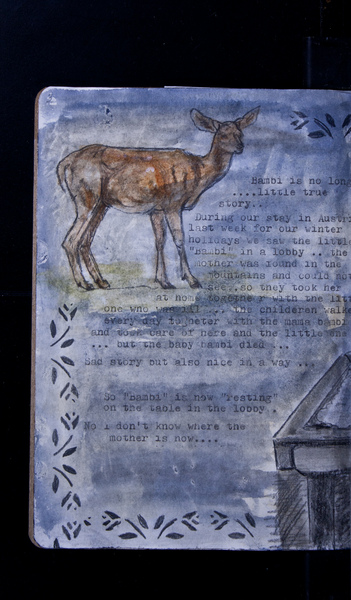 Bambi is no long
....little true
story..
During our stay in Austri
last week for our winter
holidays we saw the little
"Bambi" in a lobby .. the
mother was found in the
mountains and could not
see..so they took her
at home together with the litt
one who was ... the childeren walke
every day together with the mama bambi
and took care of here and the little one
... but the baby bambi died ...
Sad story but also nice in a way ...
So "Bambi" is now "resting"
on the table in the lobby .
No I don't know where the
mother is now....